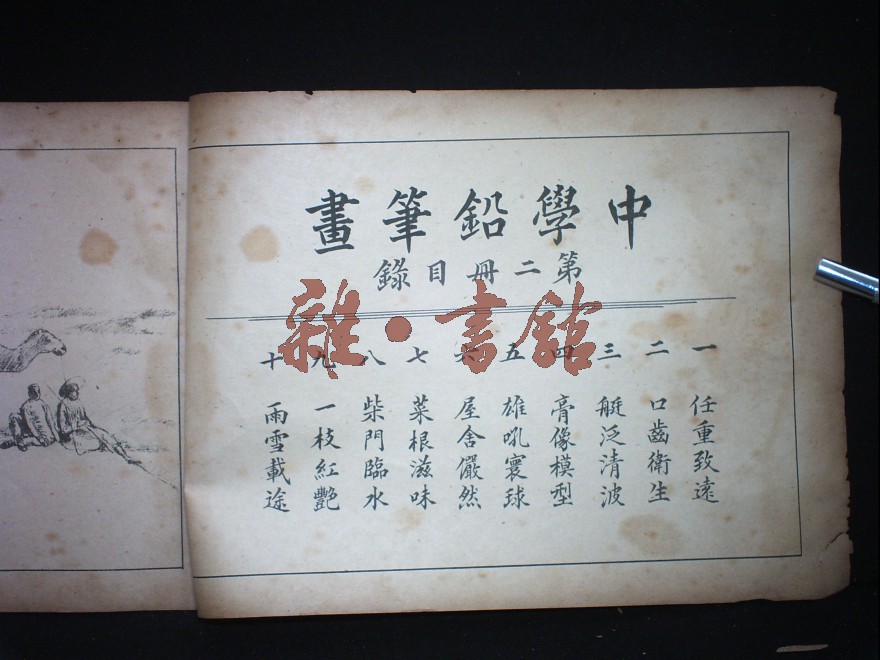 中學鉛筆畫
第二冊目錄
一 任重致遠
二 口齒衛生
三 艇泛清波
四 膏像模型
五 雄吼寰球
六 屋舍儼然
七 菜根滋味
八 柴門臨水
九 一枝紅艷
十 雨雪載途
雜·書館